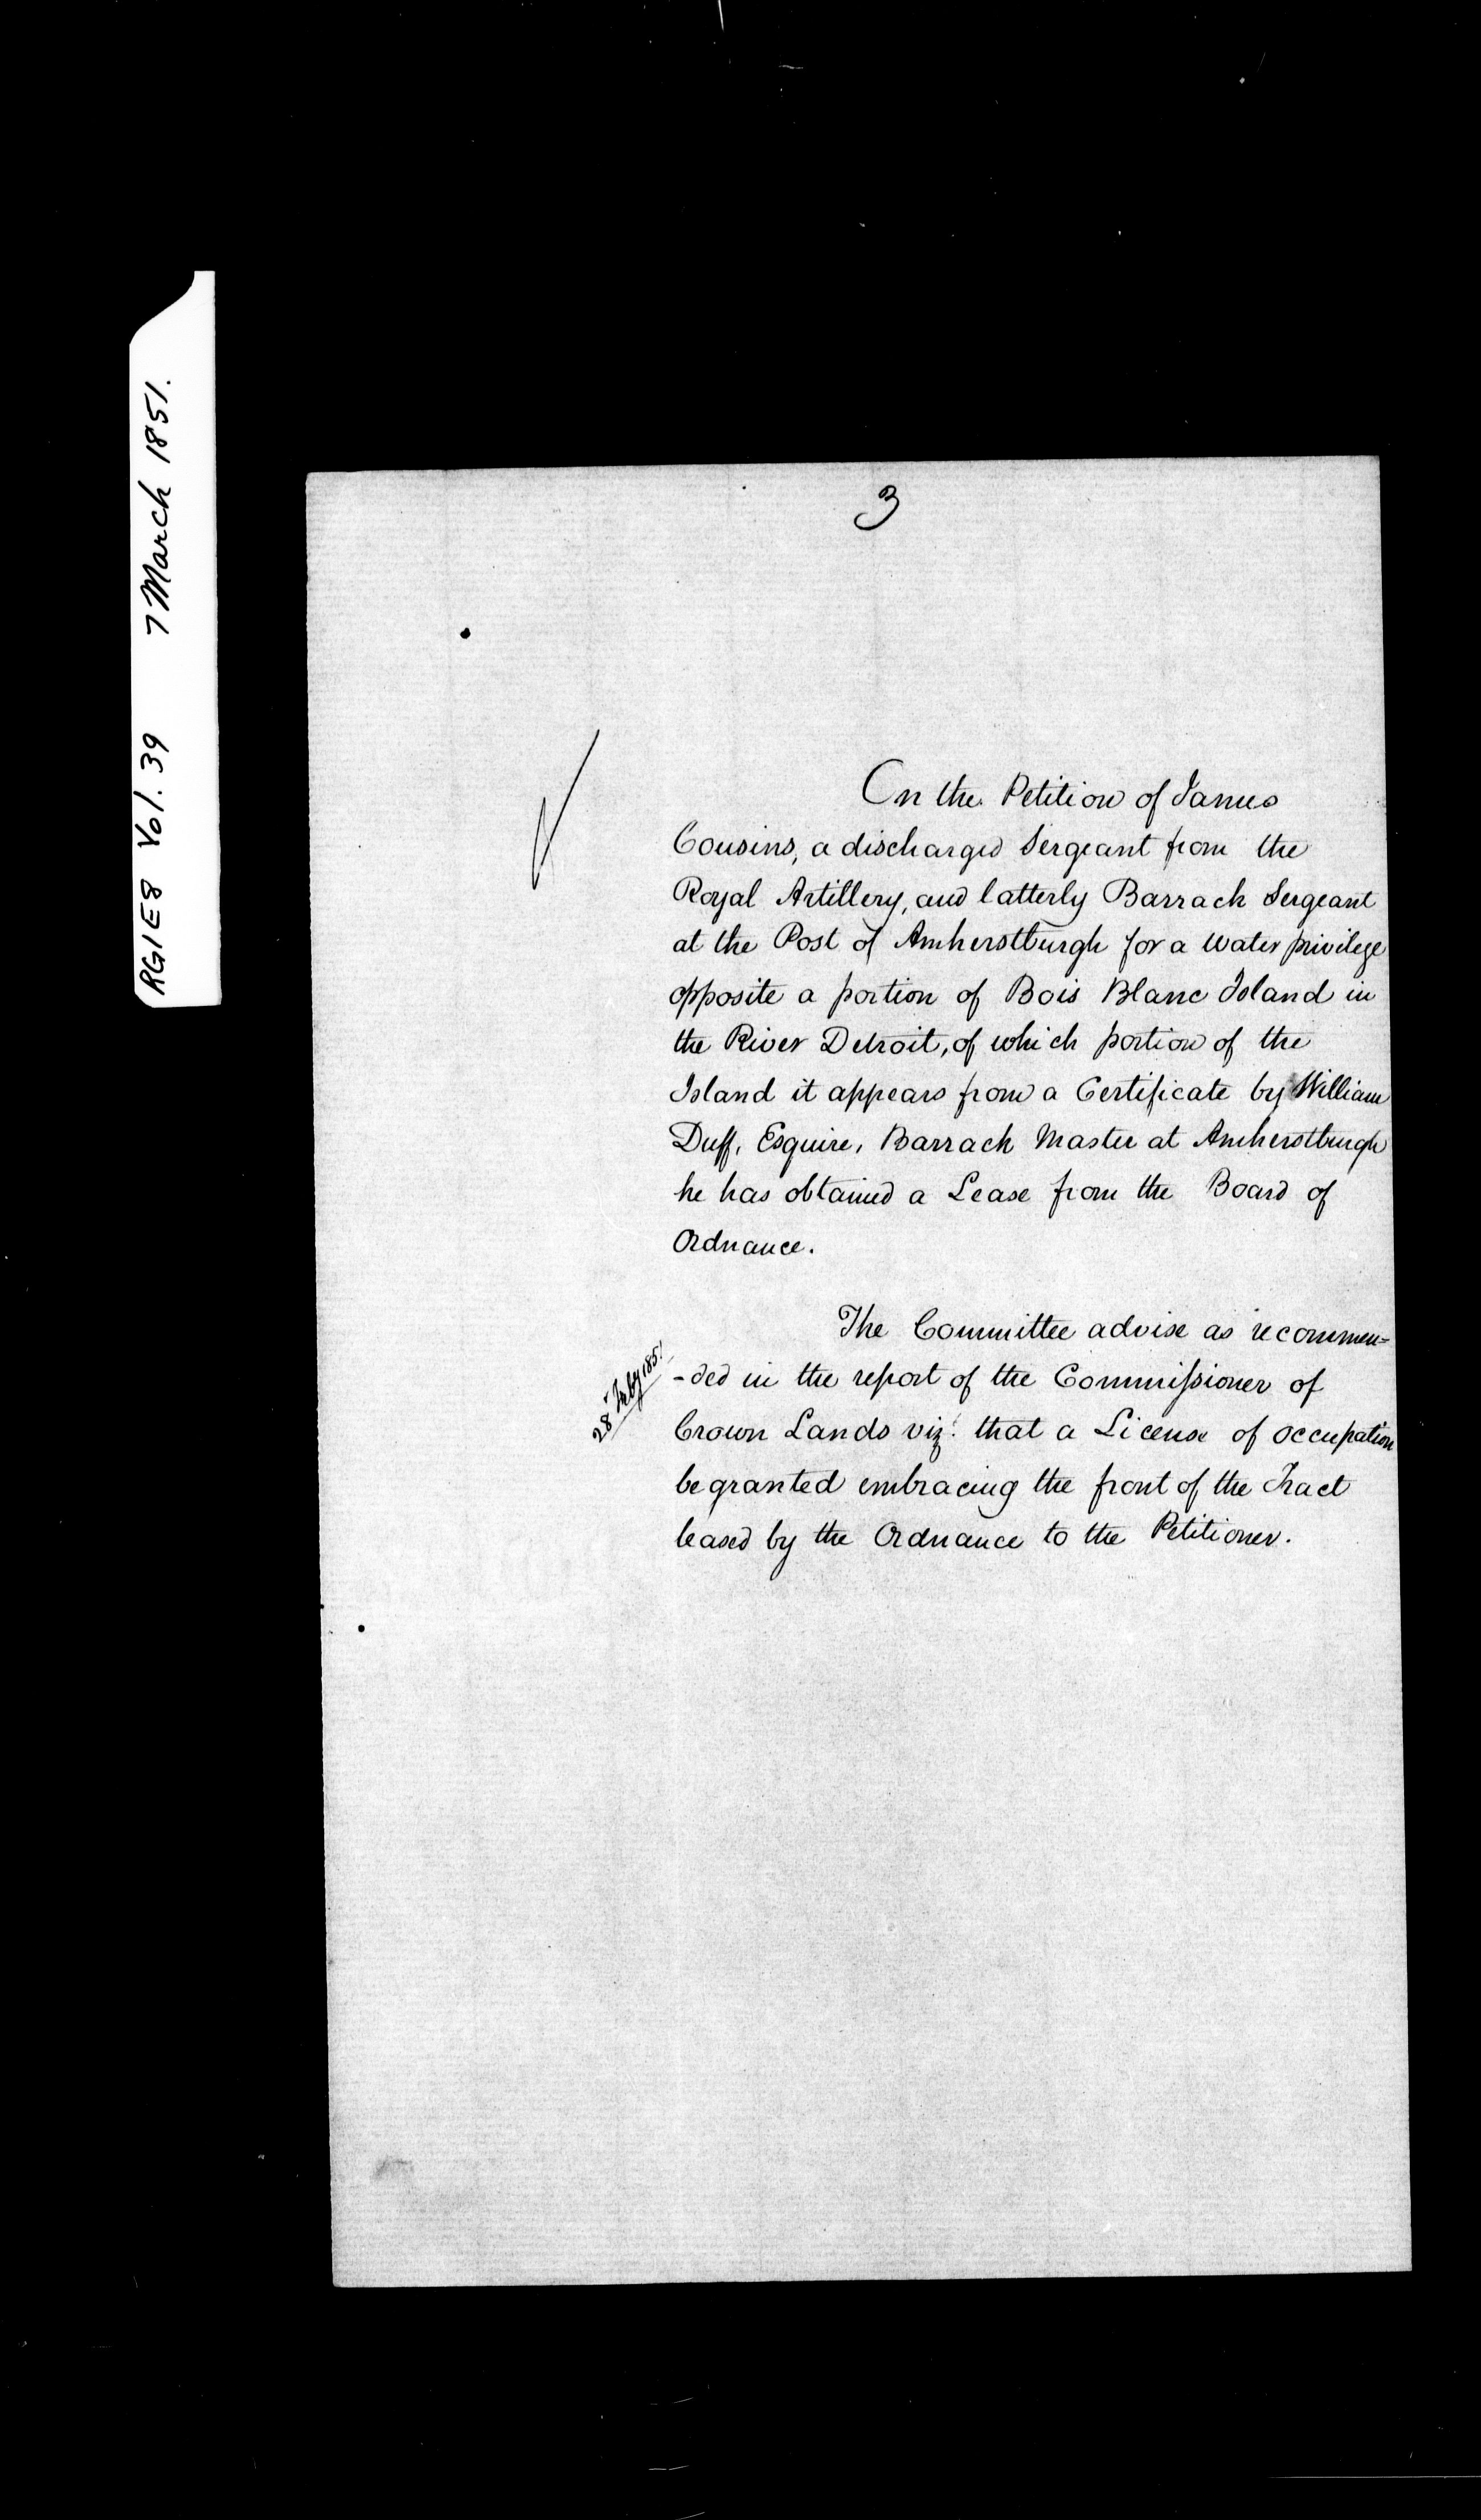 RG1E8 Vol. 39 7 March 1851.
3
On the Petition of James
Cousins, a discharged Sergeant from the
Royal Artillery, and latterly Barrack Sergeant
at the Post of Amherstburgh for a Water privilege
opposite a portion of Bois Blanc Island in
the River Detroit, of which portion of the
Island it appears from a Certificate by William
Duff, Esquire, Barrack Master at Amherstburgh
he has obtained a Lease from the Board of
Ordnance.
The Committee advise as recommen=
-ded in the report of the Commissioner of
28 Feby 1851
Crown Lands viz: that a License of occupation
be granted embracing the front of the Tract
leased by the Ordnance to the Petitioner.